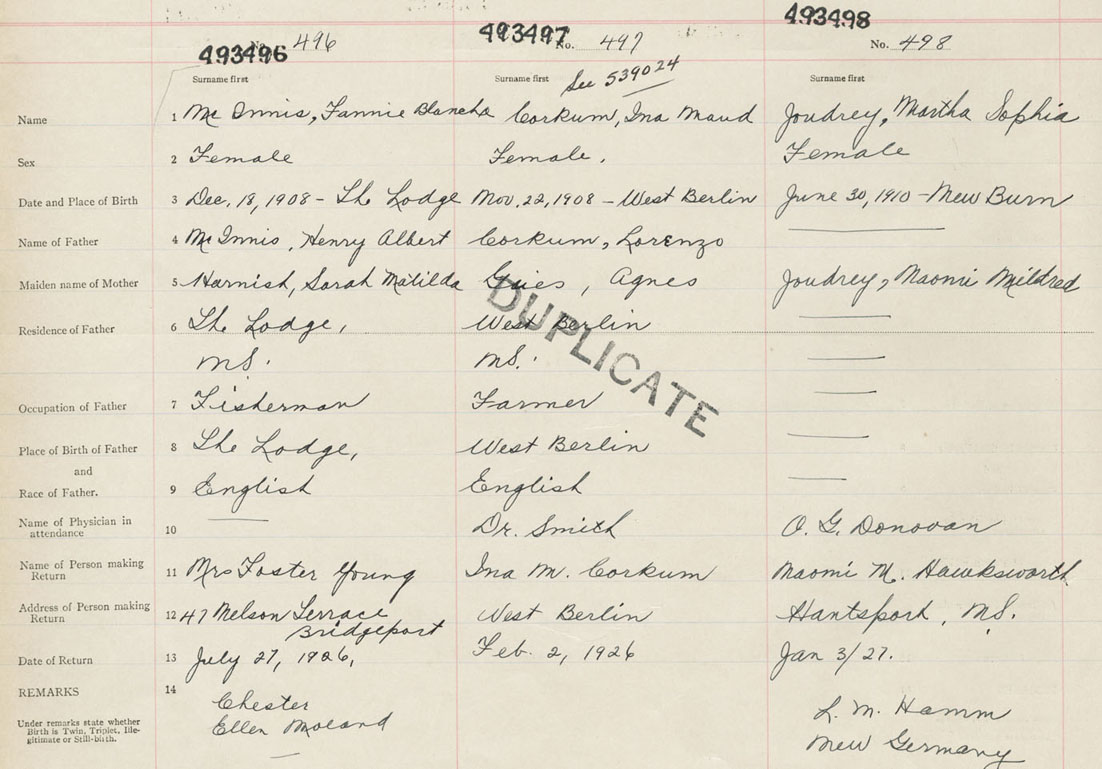 493496 No. 496 493497 No. 497 493498 No. 498
Surname first Surname first See 539024 Surname first
Name 1 Mc Innis, Fannie Blancha Corkum, Ina Maud Joudrey, Martha Sophia
Sex 2 Female Female. Female
Date and Place of Birth 3 Dec. 18, 1908 - The Lodge Nov. 22, 1908 - West Berlin June 30, 1910 - New Burn
Name of Father 4 Mc Innis, Henry Albert Corkum, Lorenzo
Maiden name of Mother 5 Harnish, Sarah Matilda Agnes Joudrey, Naomi Mildred
DUPLICATE
Residence of Father 6 The Lodge, West Berlin
N.S. N.S.
Occupation of Father 7 Fisherman Farmer
Place of Birth of Father 8 The Lodge, West Berlin
and
Race of Father. 9 English English
Name of Physician in attendance 10 Dr. Smith O. G. Donovan
Name of Person making Return 11 Mrs Foster Young Ina M. Corkum Naomi M. Hawksworth
Address of Person making Return 12 47 Nelson Terrace West Berlin Hantsport, N.S.
Bridgeport
Date of Return 13 July 27, 1926, Feb. 2, 1926 Jan 3/27.
REMARKS 14
Chester L. M. Hamm
Under remarks state whether Birth is Twin, Triplet, Ille-
gitimate or Still-birth.
Ellen New Germany